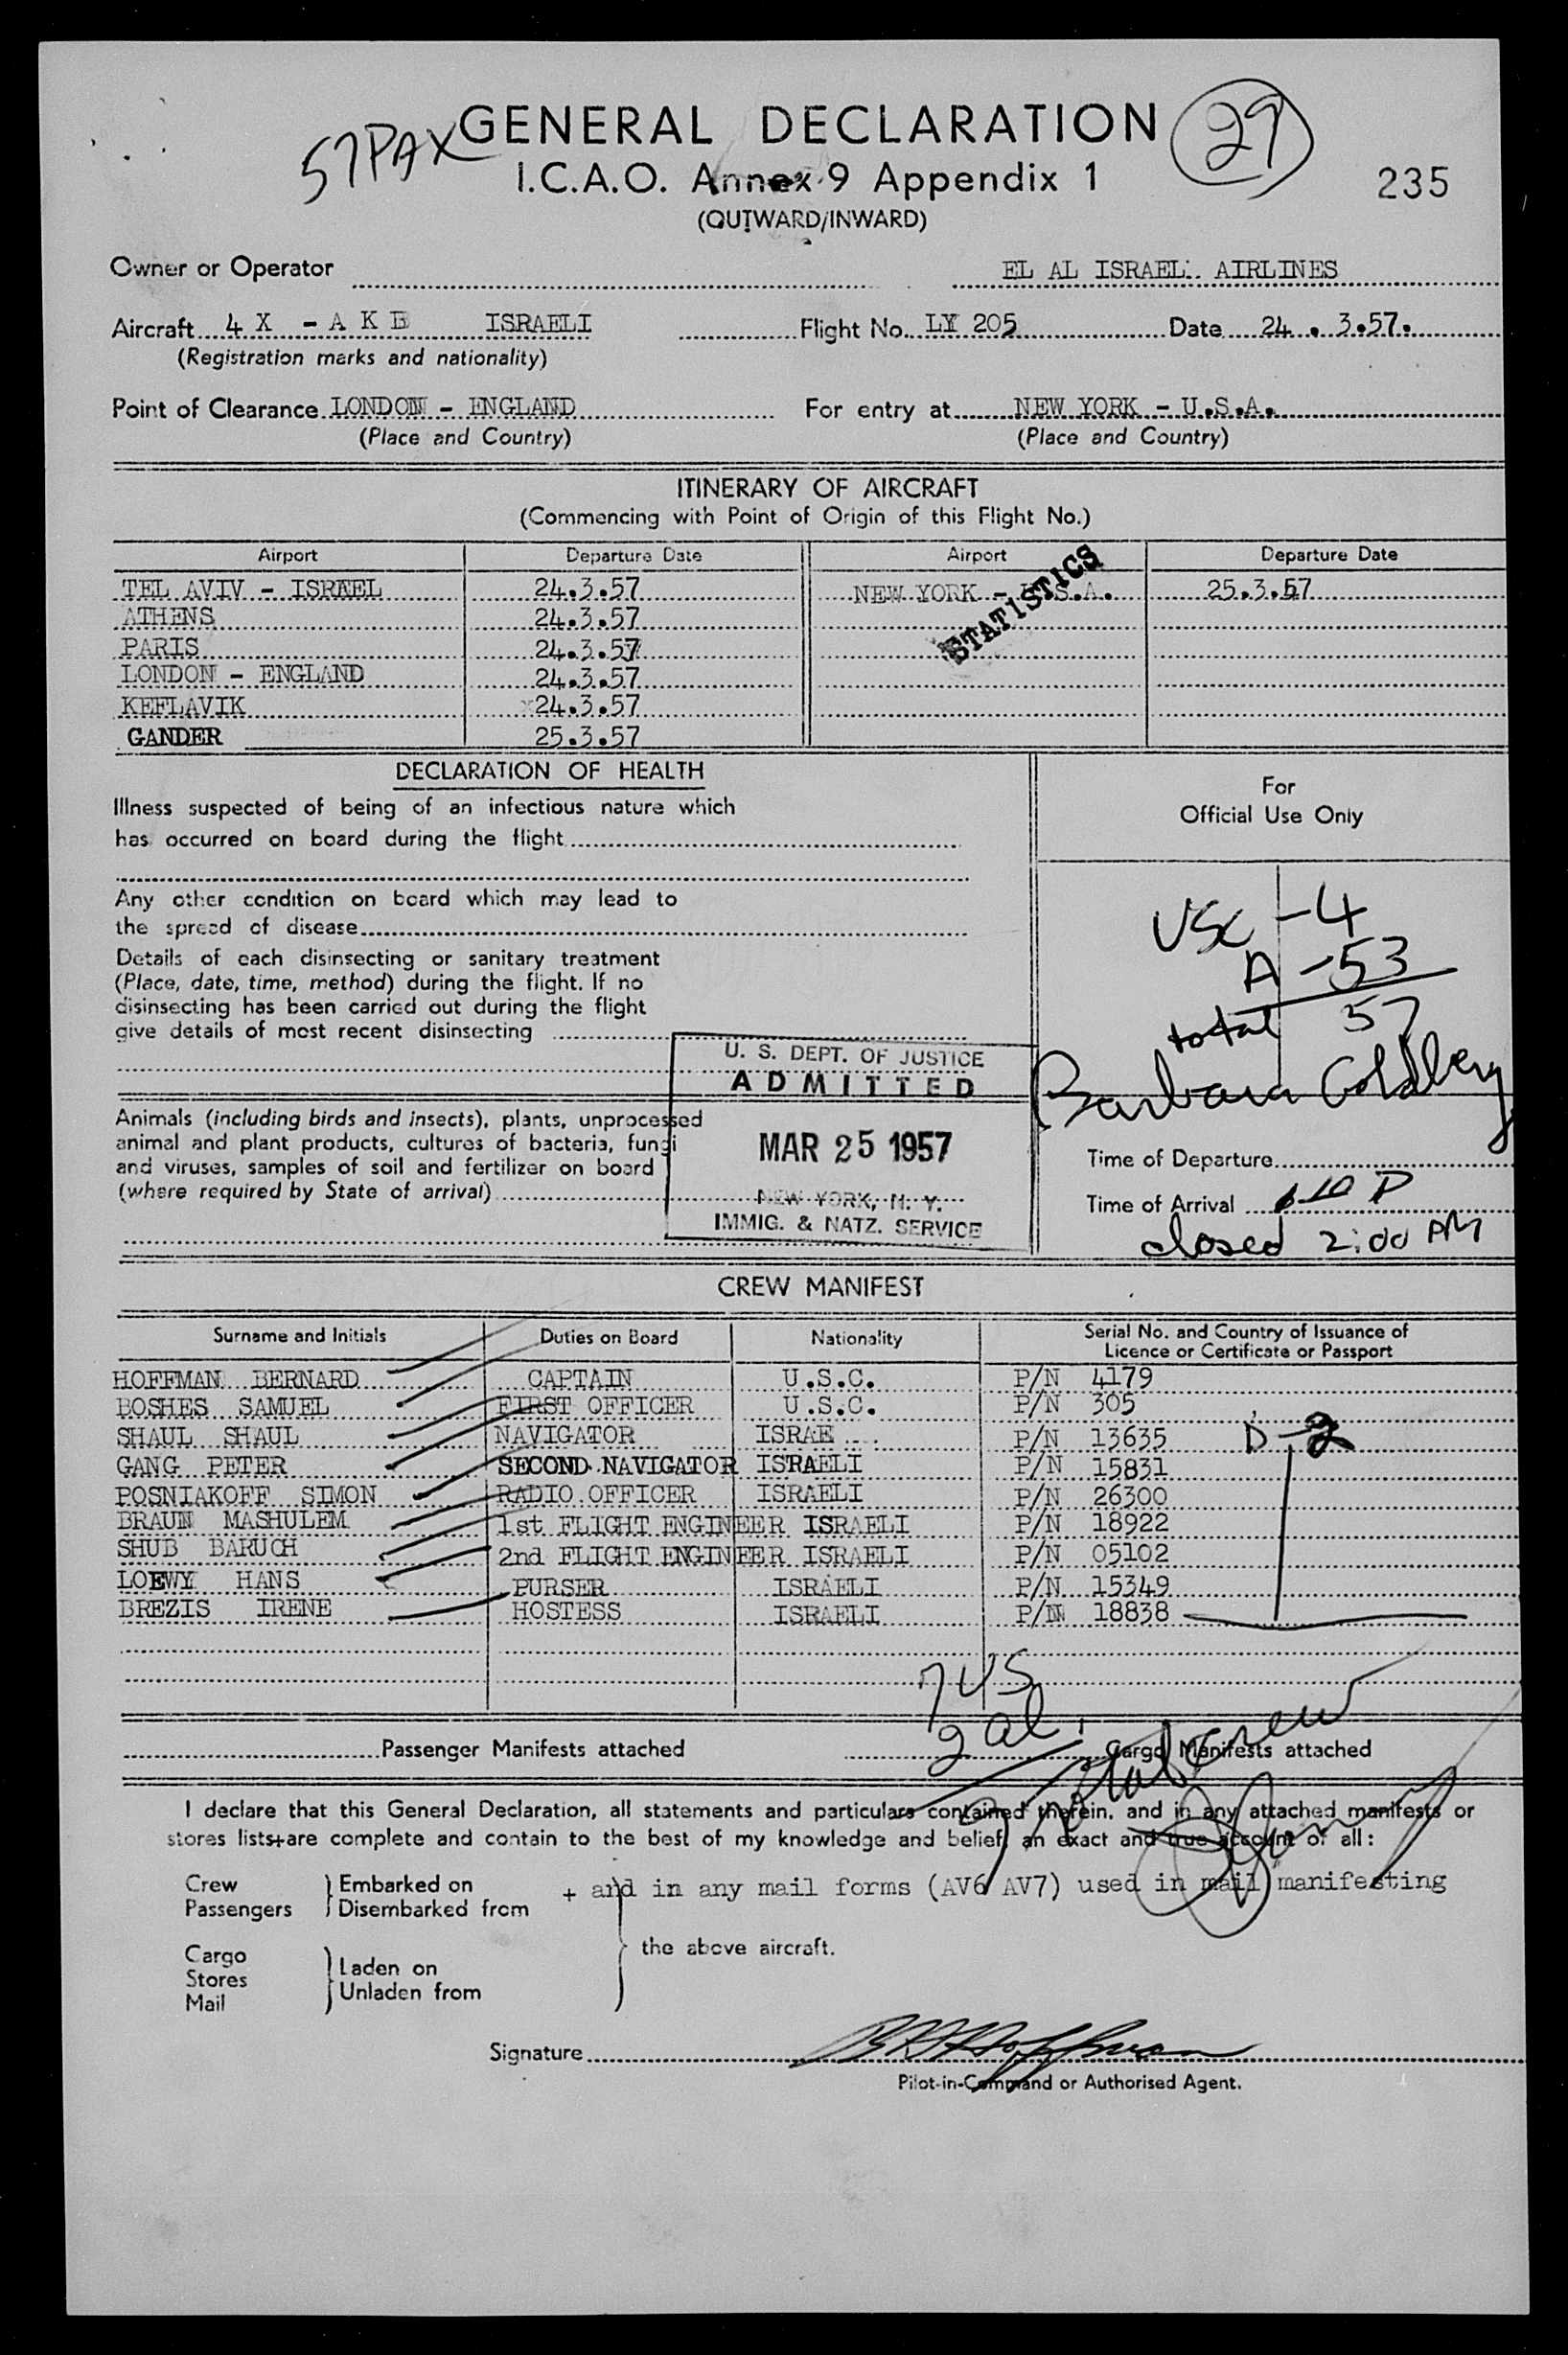 57 PAX GENERAL DECLARATION 29
I.C.A.O. Annex 9 Appendix 1
235
(OUTWARD/INWARD)
Owner or Operator EL AL ISRAEL AIRLINES
Aircraft 4 X - A K B ISRAELI Flight No. LY 205 Date 24 . 3.57.
(Registration marks and nationality)
Point of Clearance LONDON - ENGLAND For entry at NEW YORK - U.S.A.
(Place and Country) (Place and Country)
ITINERARY OF AIRCRAFT
(Commencing with Point of Origin of this Flight No.)
Airport Departure Date Airport Departure Date
TEL AVIV - ISRAEL 24.3.57 NEW YORK - U.S.A. 25.3.57
STATISTICS
ATHENS 24.3.57
PARIS 24.3.57
LONDON - ENGLAND 24.3.57
KEFLAVIK 24.3.57
GANDER 25.3.57
DECLARATION OF HEALTH
Illness suspected of being of an infectious nature which
has occurred on board during the flight
Any other condition on board which may lead to
the spread of disease
Details of each disinsecting or sanitary treatment
(Place, date, time, method) during the flight. If no
disinsecting has been carried out during the flight
give details of most recent disinsecting
For
Official Use Only
USC - 4
A - 53
total 57
Barbara Goldberg
U. S. DEPT. OF JUSTICE
ADMITTED
MAR 25 1957
NEW YORK, N. Y.
IMMIG. & NATZ. SERVICE
Animals (including birds and insects), plants, unprocessed
animal and plant products, cultures of bacteria, fungi
and viruses, samples of soil and fertilizer on board
(where required by State of arrival)
Time of Departure
Time of Arrival 610 P
closed 2:00 PM
CREW MANIFEST
Surname and Initials Duties on Board Nationality Serial No. and Country of Issuance of
Licence or Certificate or Passport
HOFFMAN BERNARD CAPTAIN U.S.C. P/N 4179
BOSHES SAMUEL FIRST OFFICER U.S.C. P/N 305
SHAUL SHAUL NAVIGATOR ISRAE P/N 13635 D-2
GANG PETER SECOND NAVIGATOR ISRAELI P/N 15831
POSNIAKOFF SIMON RADIO OFFICER ISRAELI P/N 26300
BRAUN MASHULEM 1st FLIGHT ENGINEER ISRAELI P/N 18922
SHUB BARUCH 2nd FLIGHT ENGINEER ISRAELI P/N 05102
LOEWY HANS PURSER ISRAELI P/N 15349
BREZIS IRENE HOSTESS ISRAELI P/N 18838
7 US
2 al.
9 total crew
Passenger Manifests attached Cargo Manifests attached
I declare that this General Declaration, all statements and particulars contained therein, and in any attached manifests or
stores lists+are complete and contain to the best of my knowledge and belief, an exact and true account of all:
Crew Embarked on + and in any mail forms (AV6 AV7) used in mail manifesting
Passengers Disembarked from
the above aircraft.
Cargo
Stores Laden on
Mail Unladen from
Signature B Hoffman
Pilot-in-Command or Authorised Agent.